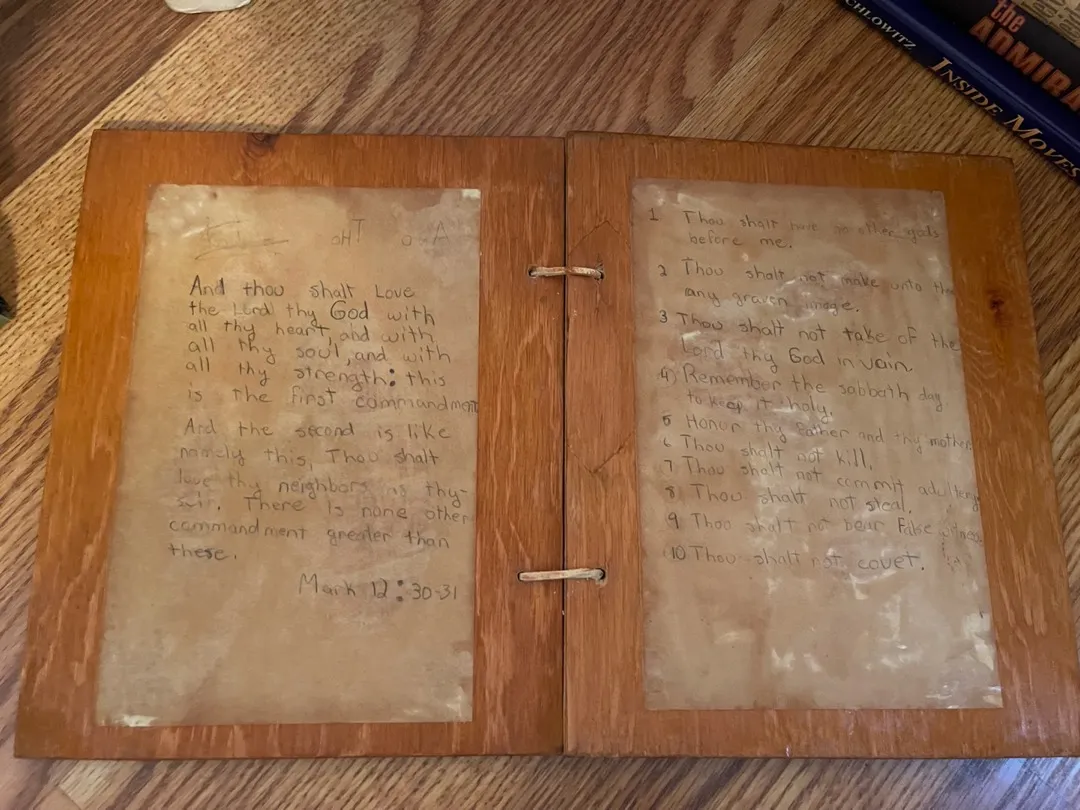 And thou shalt Love
the Lord thy God with
all thy heart, and with
all thy soul, and with
all thy strength: this
is the first commandment
And the second is like
namely this, Thou shalt
love thy neighbors as thy-
self. There is none other
commandment greater than
these.
Mark 12:30-31
1 Thou shalt have no other gods
before me.
2 Thou shalt not make unto the
any graven image.
3 Thou shalt not take of the
Lord thy God in vain.
4) Remember the sabbath day
to keep it holy.
5 Honor thy father and thy mother
6 Thou shalt not kill.
7 Thou shalt not commit adultery
8 Thou shalt not steal.
9 Thou shalt not bear false witness
10 Thou shalt not covet.
CHLOWITZ INSIDE MOVES
the
ADMIRA